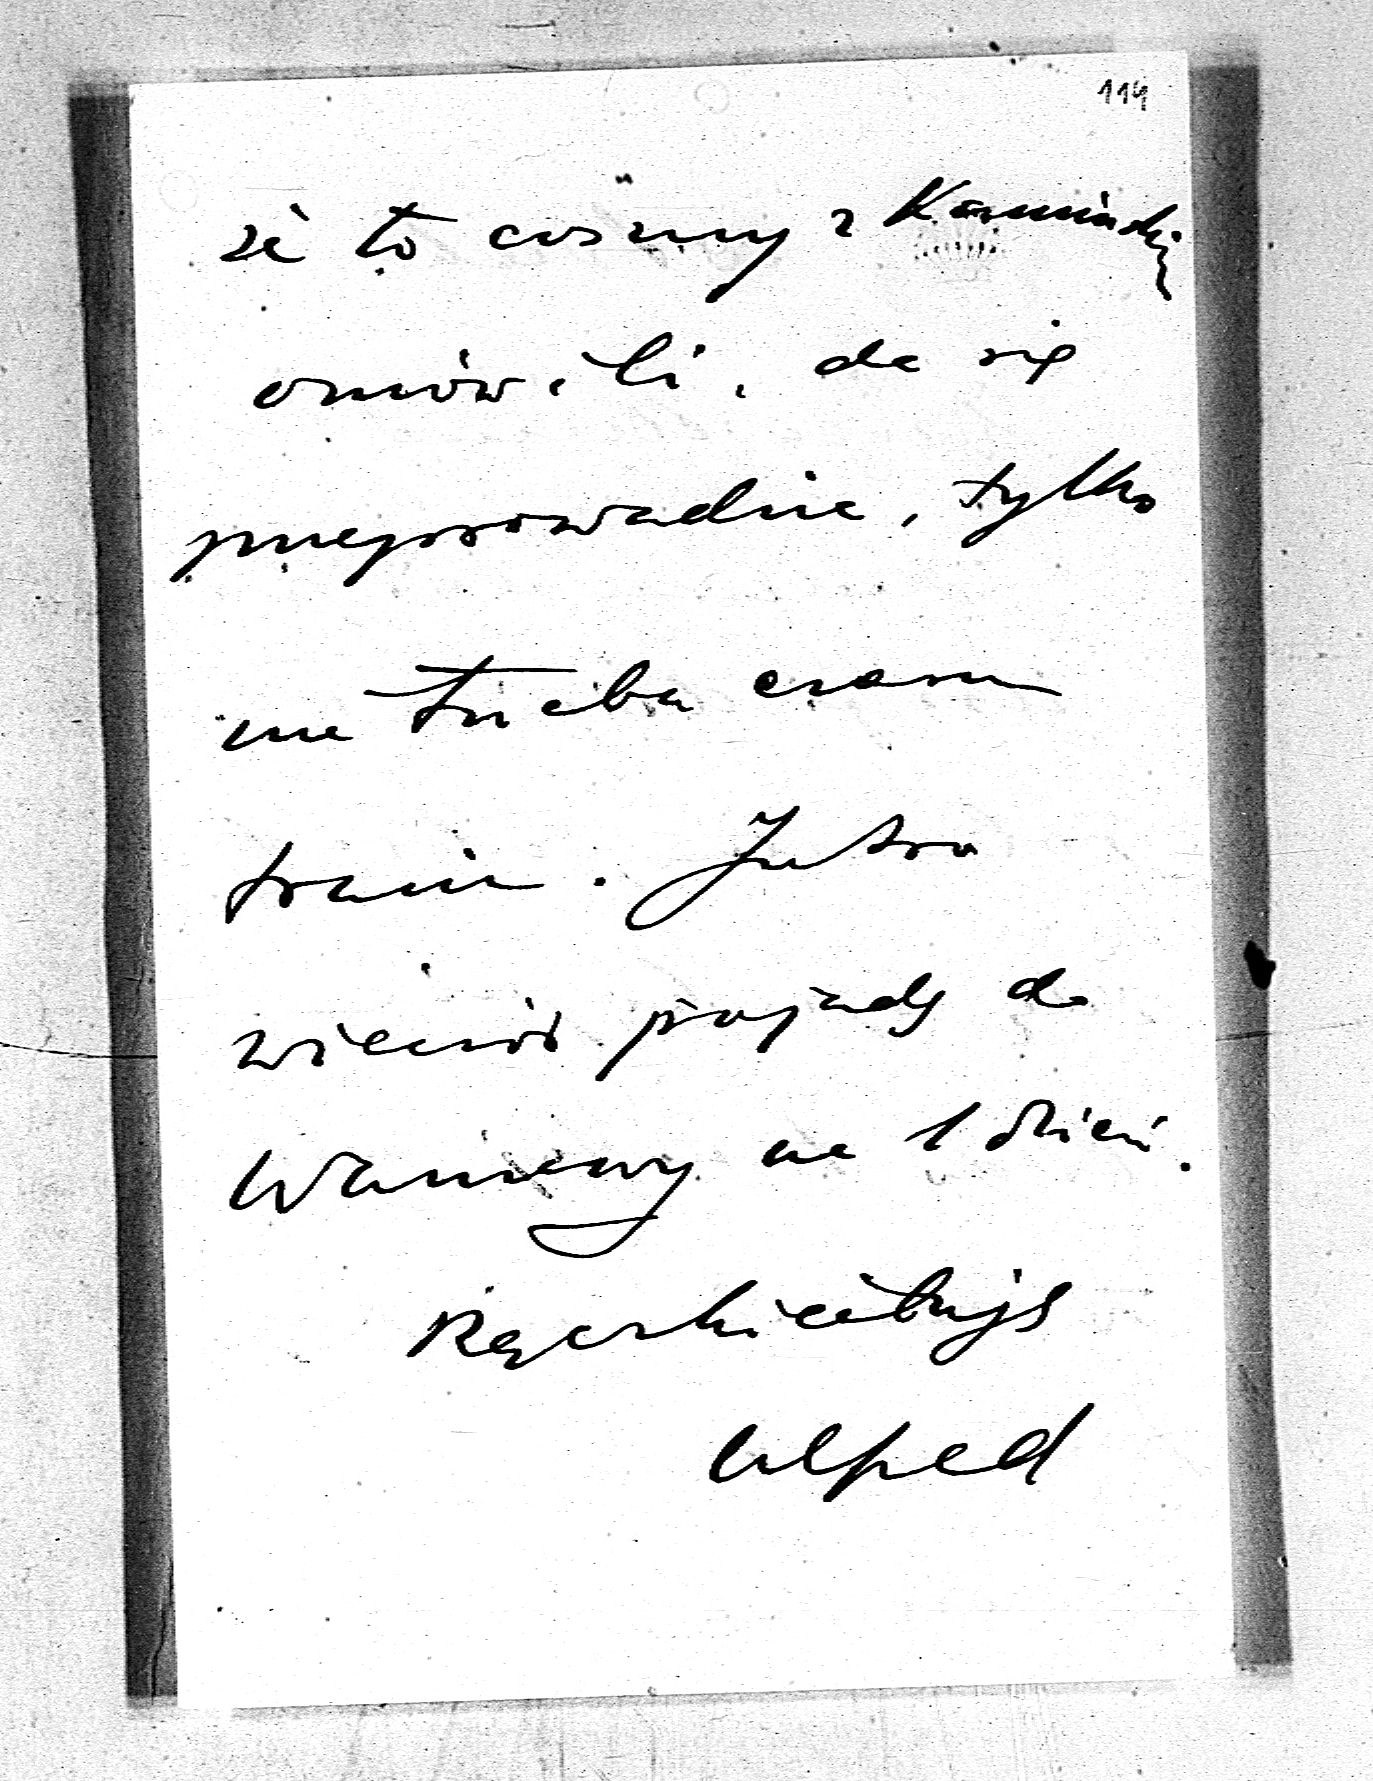 114
że to cośmy z Kamińskim
omówili, da się
przeprowadzić, tylko
nie trzeba czasu
tracić. Jutro
wieczór pojadę do
Warszawy na 1 dzień.
Rączki całuję
Alfred